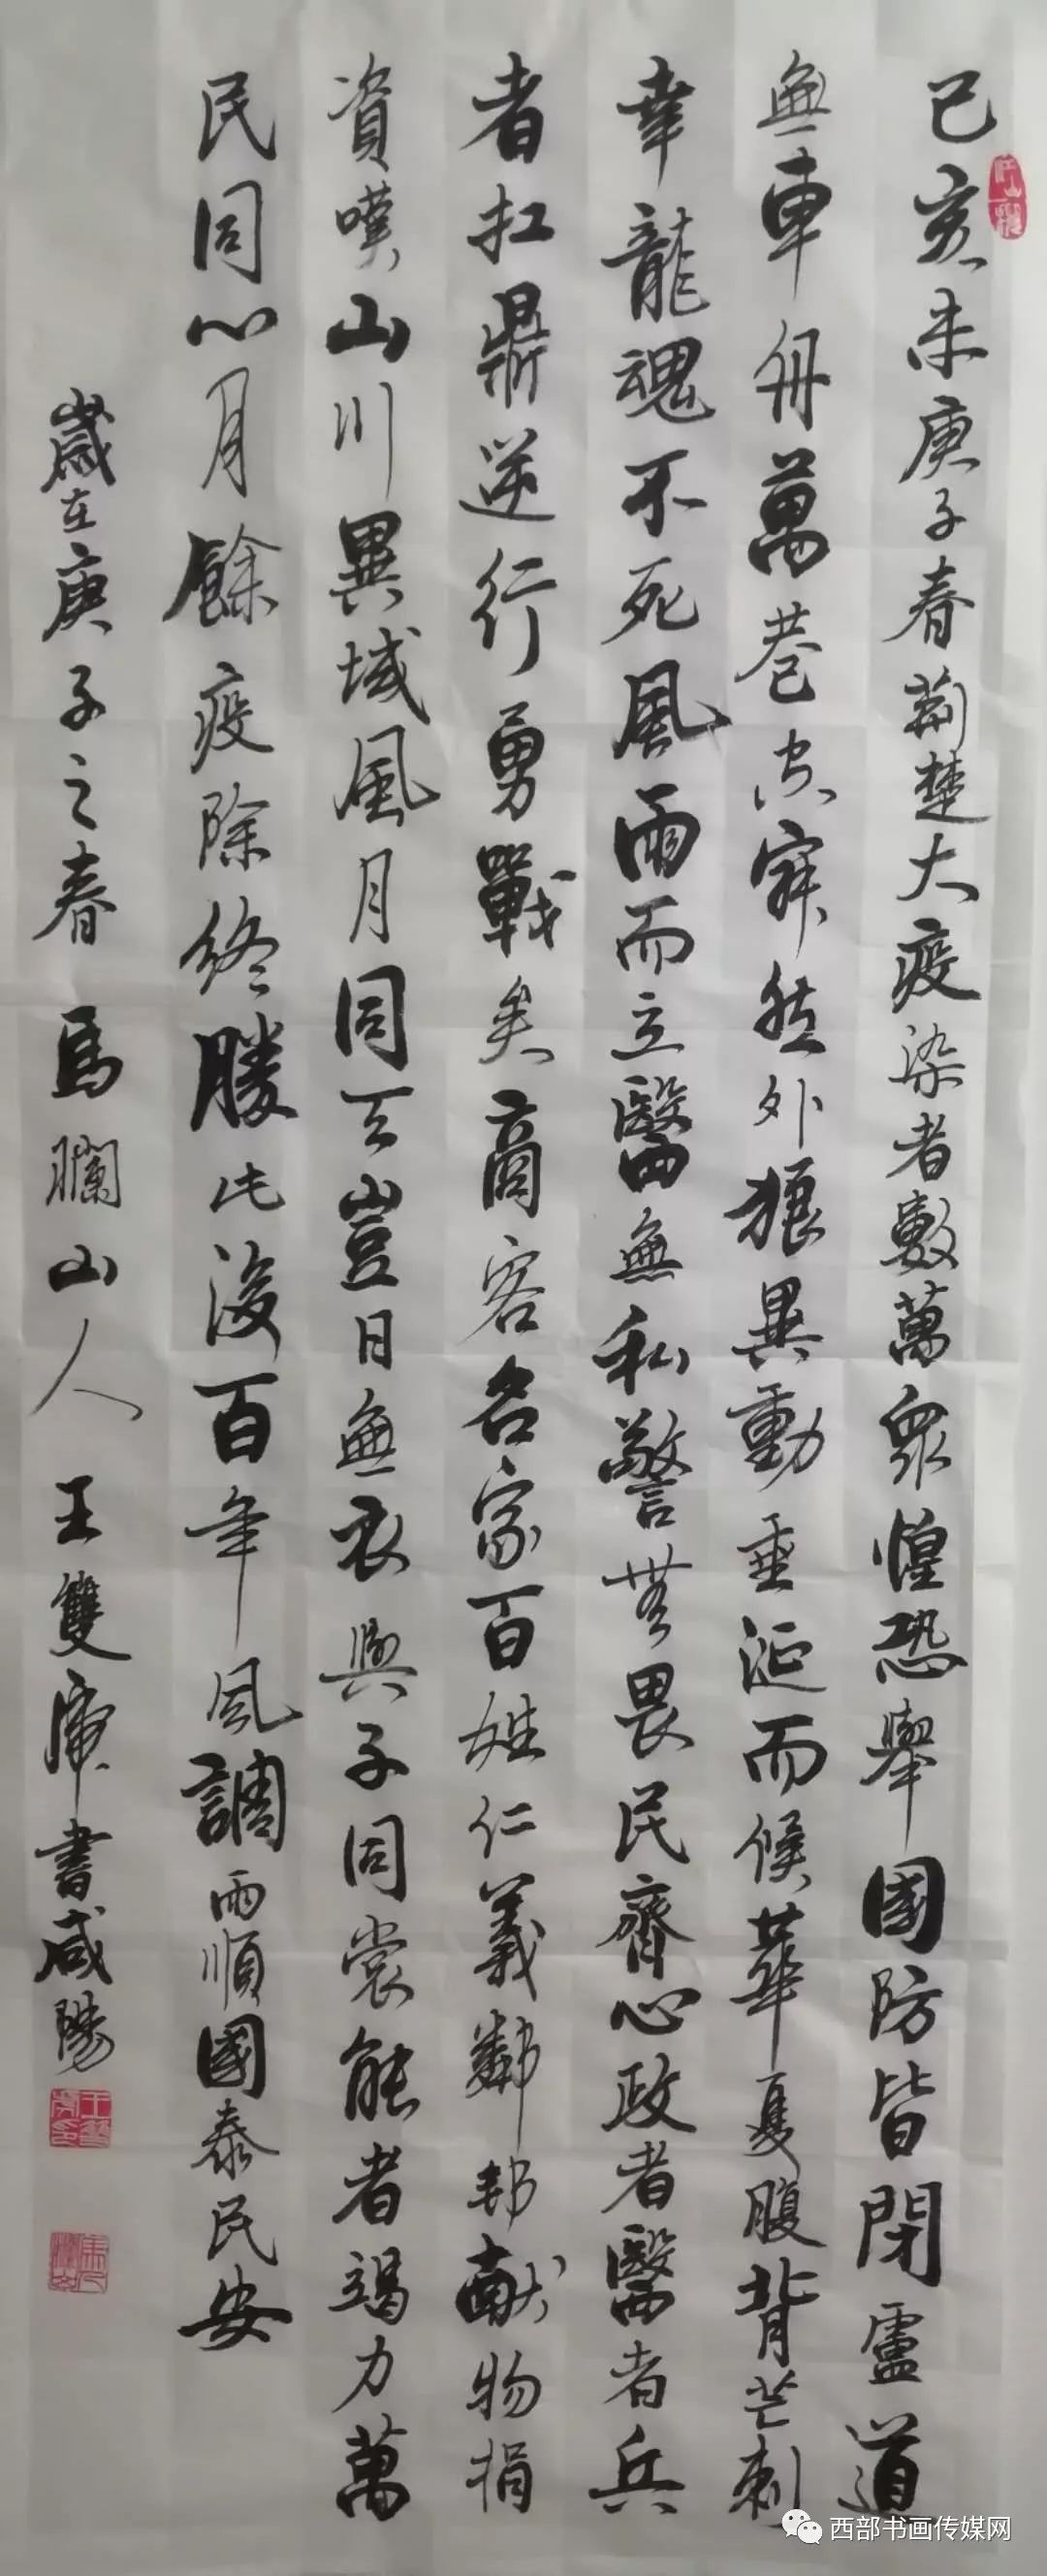 己亥末庚子春荆楚大疫染者數萬衆惶恐舉國防皆閉盧道
無車舟萬巷空寂然外狼異動垂涎而候華夏腹背芒刺
幸龍魂不死風雨而立醫無私警無畏民齊心政者醫者兵
者扛鼎逆行勇戰矣商客名家百姓仁義鄰邦献物捐
資嘆山川異域風月同天豈曰無衣與子同裳能者竭力萬
民同心月餘疫除終勝此後百年風調雨順國泰民安
歲在庚子之春 馬瀾山人 王雙虎書咸陽
西部书画传媒网